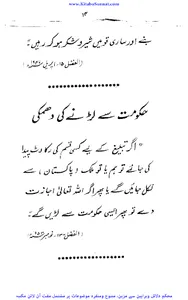 www.KitaboSunnat.com
۷۴
بنے اور ساری قومیں شیر و شکر ہو کر رہیں۔
(الفضل ۵؍اپریل ۱۹۴۷ء)
حکومت سے لڑنے کی دھمکی
"اگر تبلیغ کے لیے کسی قسم کی رکاوٹ پیدا
کی جائے تو ہم یا تو ملک (پاکستان) سے
نکل جائیں گے یا پھر اگر اللہ تعالیٰ اجازت
دے تو پھر ایسی حکومت سے لڑیں گے۔
محکم دلائل وبراہین سے مزین، متنوع ومنفرد موضوعات پر مشتمل مفت آن لائن مکتبہ